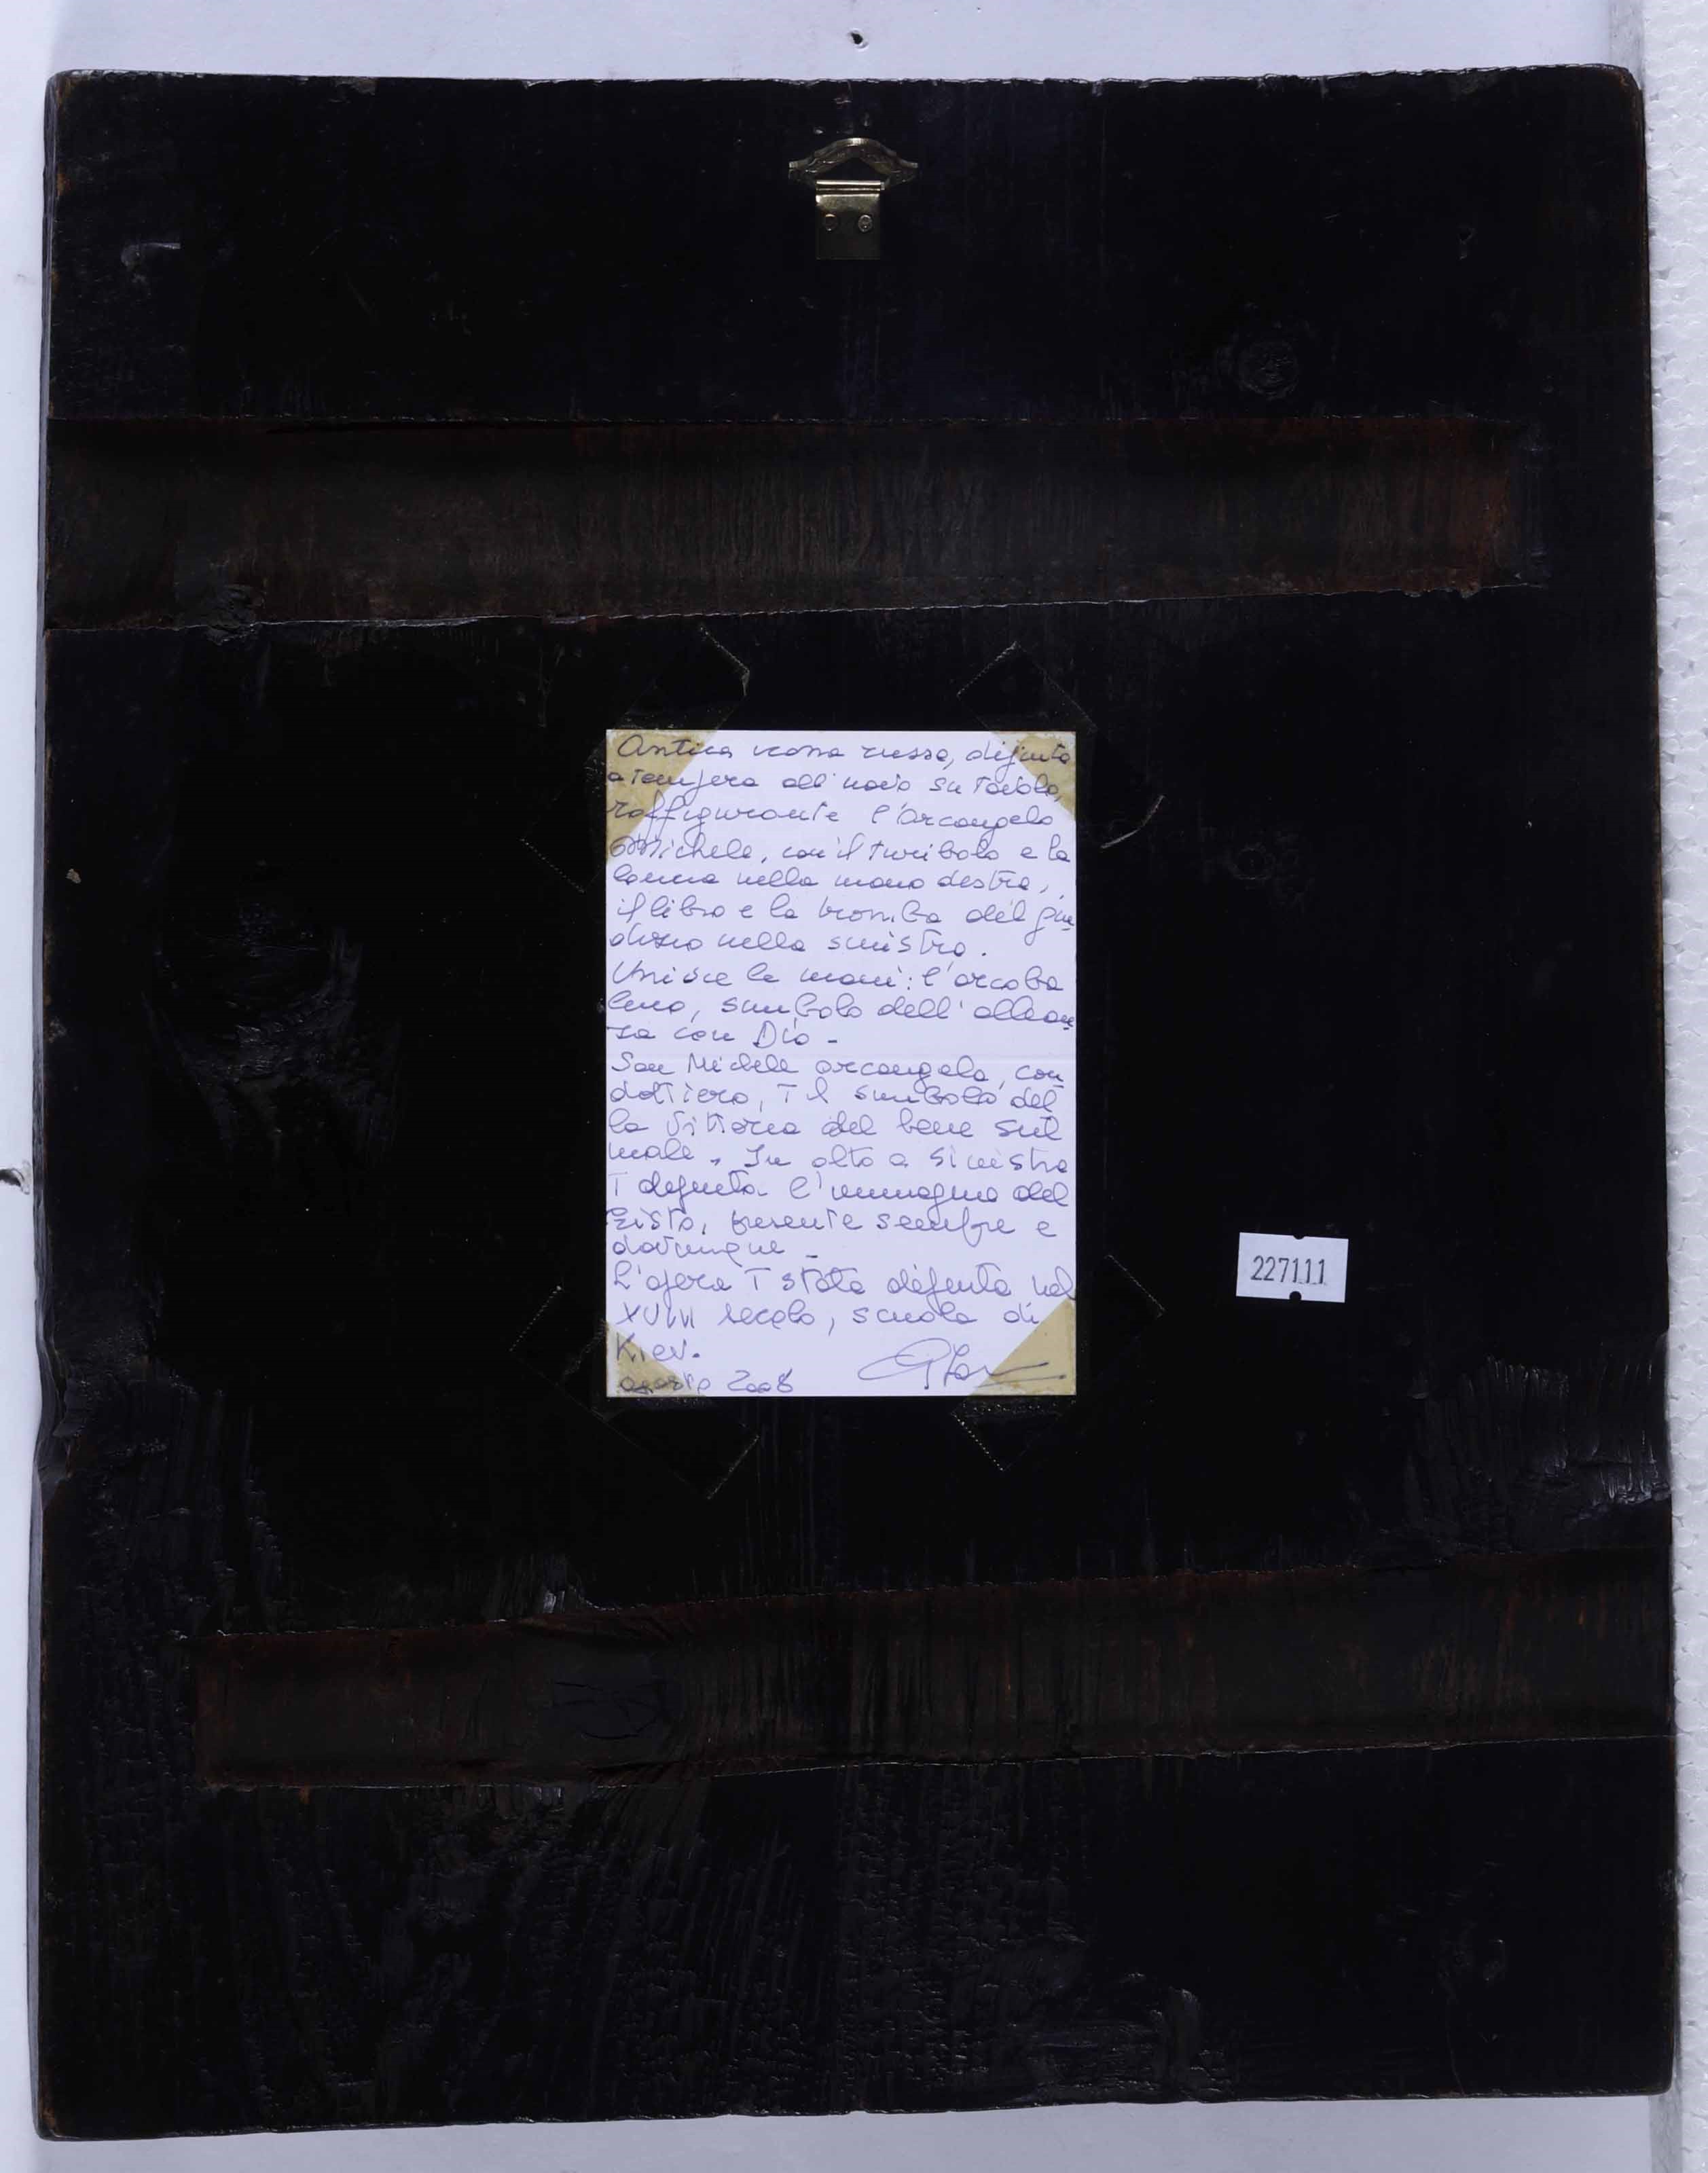 Antica icona russa, dipinta
a tempera all'uovo su tavola,
raffigurante l'Arcangelo
Michele, con il turibolo e la
lancia nella mano destra,
il libro e la tromba del giu-
dizio nella sinistra.
Unisce le mani: l'arcoba
leno, simbolo dell'allean-
za con Dio -
San Michele arcangelo, con
dottiero, è il simbolo del
la vittoria del bene sul
male. In alto a sinistra
è dipinta l'immagine del
Cristo, presente sempre e
dovunque -
L'opera è stata dipinta nel
XVIII secolo, scuola di
Kiev.
agosto 2008
227111